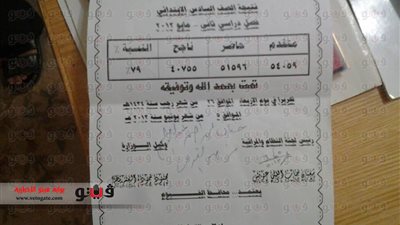 نتيجة الصف السادس الابتدائى
فصل دراسى ثانى مايو ٢٠١٣
متقدم حاضر ناجح النسبة
٥٤٠٥٩ ٥١٥٩٦ ٤٠٧٥٥ ٧٩
تمت بحمد الله وتوفيقه
تحريرا فى يوم الاربعاء الموافق ٢٦ من شهر رجب سنة ١٤٣٤ هـ
الموافق ٥ من شهر يونيو سنة ٢٠١٣ م
رئيس لجنة النظام والمراقبة
وكيل الوزارة
يعتمد محافظ الفيوم
فيتو
بوابة فيتو الإخبارية
www.vetogate.com